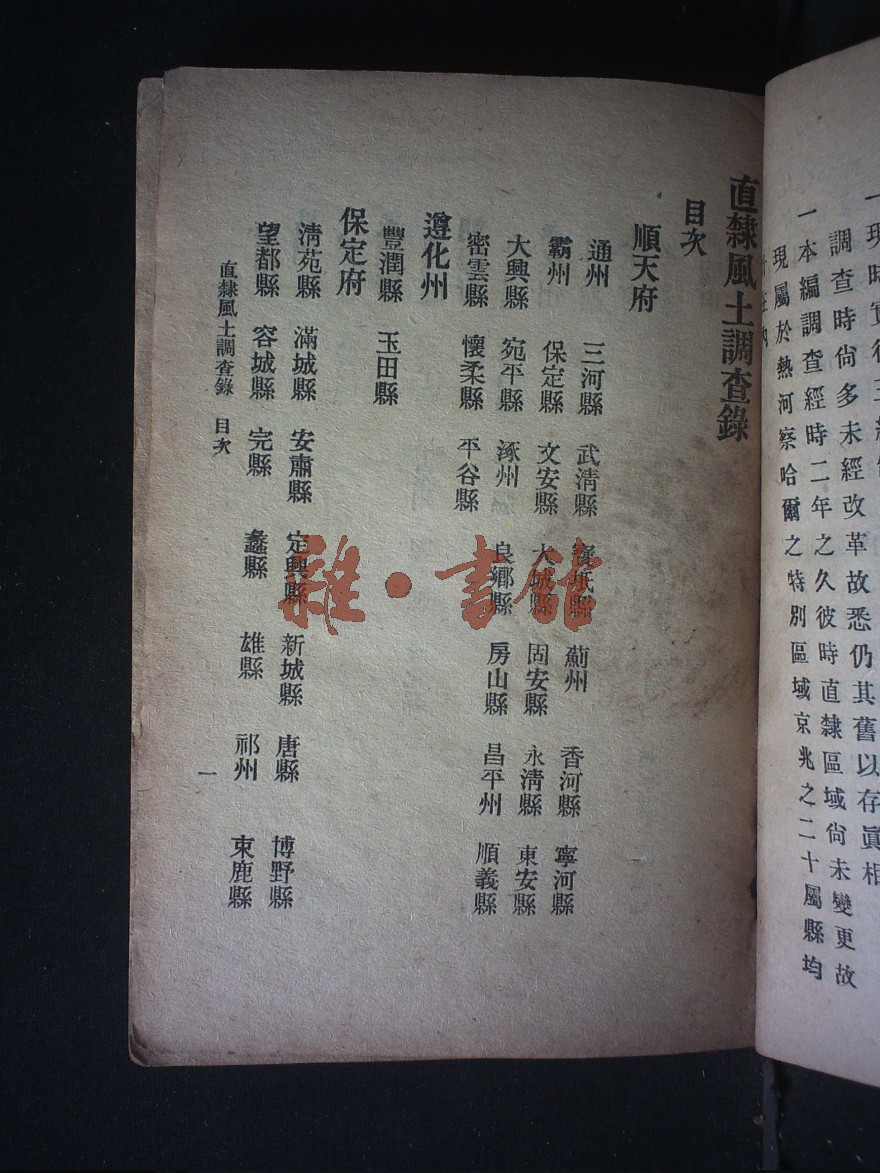 一現時實行三級
調查時尙多未經改革故悉仍其舊以存眞相
一本編調查經時二年之久彼時直隸區域尙未變更故
現屬於熱河察哈爾之特別區域京兆之二十屬縣均
直隸風土調查錄
目次
順天府
通州 三河縣 武清縣 寶坻縣 薊州 香河縣 寧河縣
霸州 保定縣 文安縣 大城縣 固安縣 永清縣 東安縣
大興縣 宛平縣 涿州 良鄉縣 房山縣 昌平州 順義縣
密雲縣 懷柔縣 平谷縣
遵化州
豐潤縣 玉田縣
保定府
清苑縣 滿城縣 安肅縣 定興縣 新城縣 唐縣 博野縣
望都縣 容城縣 完縣 蠡縣 雄縣 祁州 束鹿縣
直隸風土調查錄 目次 一
雜·書館